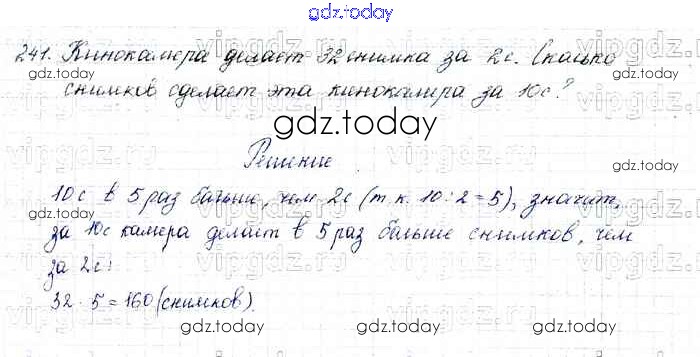 gdz.today
241. Кинокамера делает 32 снимка за 2с. Сколько
gdz.today gdz.today
снимков сделает эта кинокамера за 10с?
gdz.today
vipgdz.ru vipgdz.ru vipgdz.ru
Решение
10с в 5 раз больше, чем 2с (т.к. 10:2=5), значит,
за 10с камера делает в 5 раз больше снимков, чем
за 2с:
gdz.today gdz.today
32 · 5 = 160 (снимков).
gdz.today gdz.today